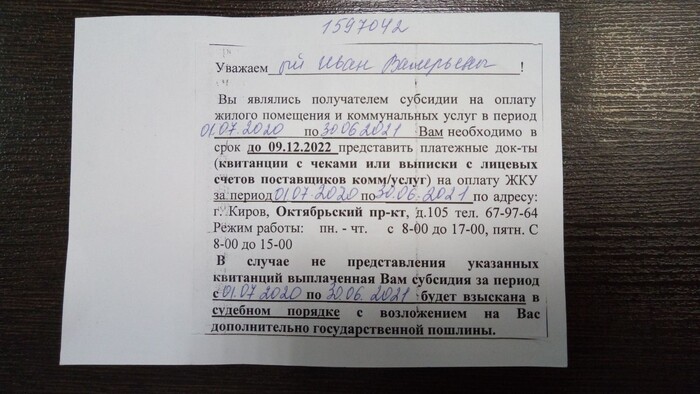 1597042
Уважаем ый Иван Валерьевич !
Вы являлись получателем субсидии на оплату
жилого помещения и коммунальных услуг в период
01.07.2020 по 30.06.2021 Вам необходимо в
срок до 09.12.2022 представить платежные док-ты
(квитанции с чеками или выписки с лицевых
счетов поставщиков комм/услуг) на оплату ЖКУ
за период 01.07.2020 по 30.06.2021 по адресу:
г. Киров, Октябрьский пр-кт, д.105 тел. 67-97-64
Режим работы: пн. - чт. с 8-00 до 17-00, пятн. С
8-00 до 15-00
В случае не представления указанных
квитанций выплаченная Вам субсидия за период
с 01.07.2020 по 30.06.2021 будет взыскана в
судебном порядке с возложением на Вас
дополнительно государственной пошлины.